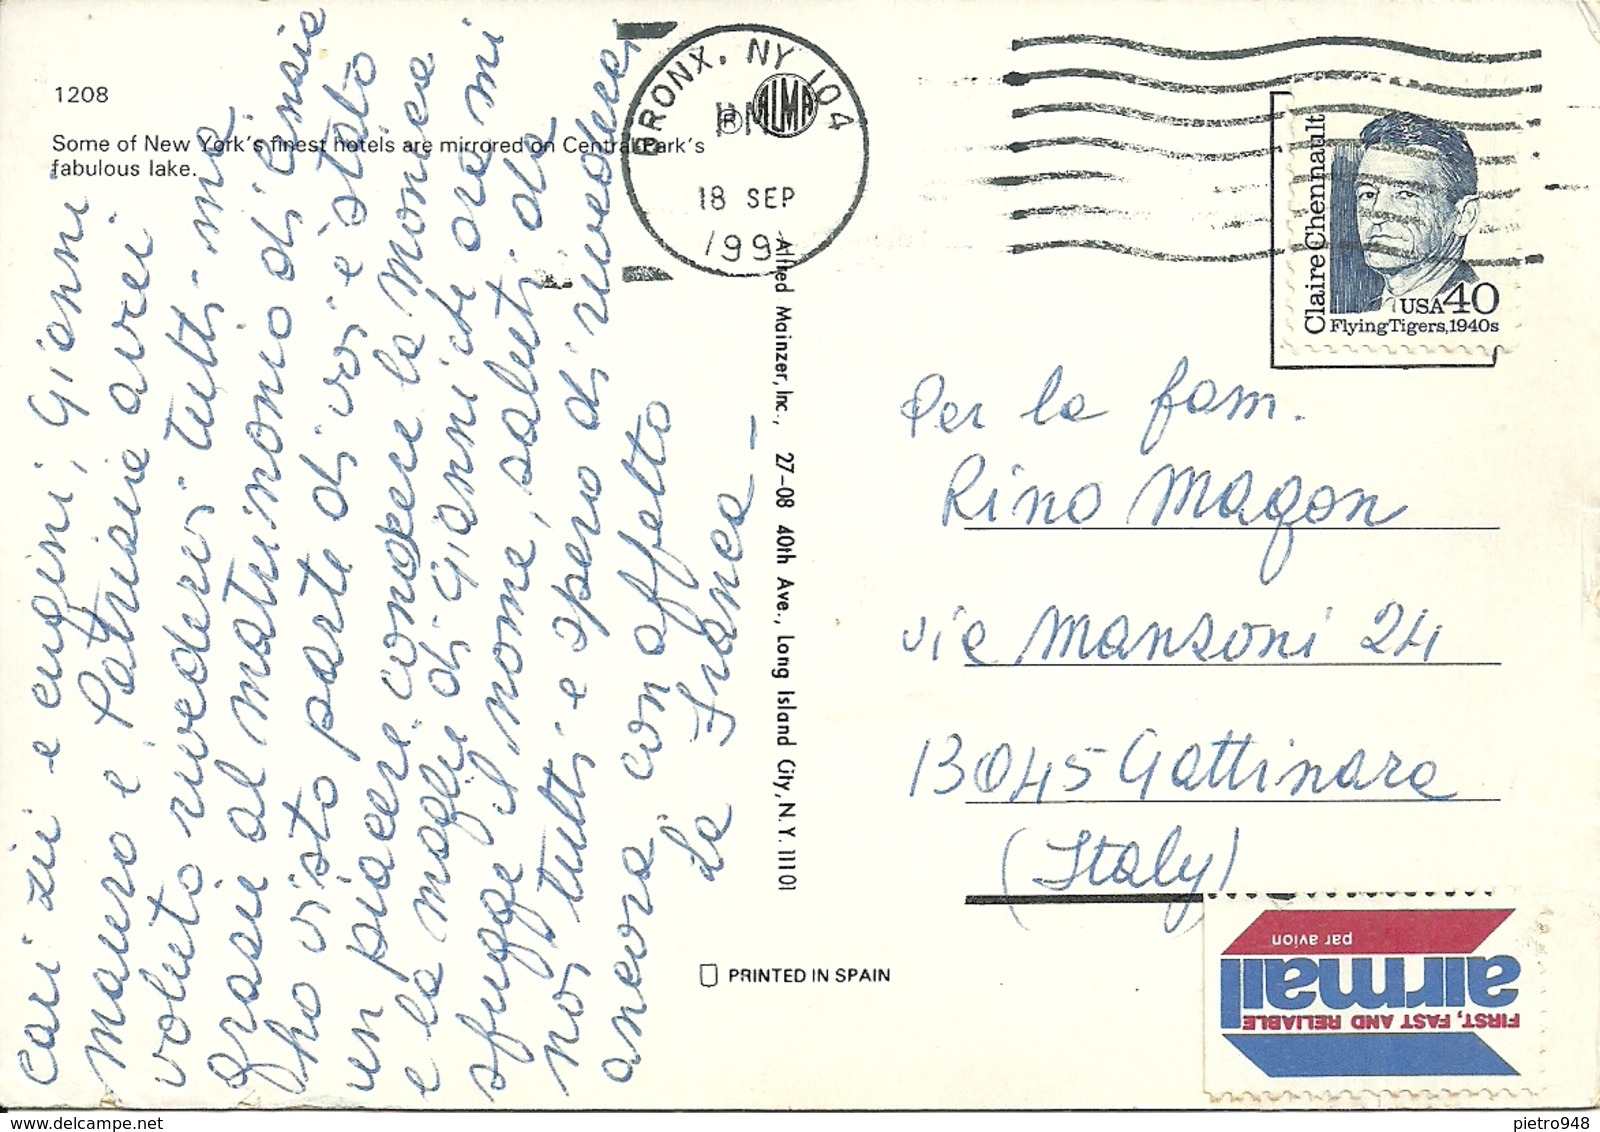 1208
Some of New York's finest hotels are mirrored on Central Park's
fabulous lake.
cari zii e cugini, Gianni
Mauro e Patrizia avrei
voluto rivedervi tutti ma
grazie al matrimonio di
ho visto parte di voi è stato
un piacere conoscere la Monica
e la moglie di Gianni che ora mi
sfugge il nome, saluti da
noi tutti e spero di rivedervi
ancora con affetto
la Franca -
BRONX, NY 104
PM
18 SEP
199
® ALMA
Alfred Mainzer, Inc., 27-08 40th Ave., Long Island City, N.Y. 11101
PRINTED IN SPAIN
Claire Chennault
USA 40
Flying Tigers, 1940s
Per la fam.
Rino Magon
via Manzoni 24
13045 Gattinara
(Italy)
par avion
airmail
FIRST, FAST AND RELIABLE
pietro948